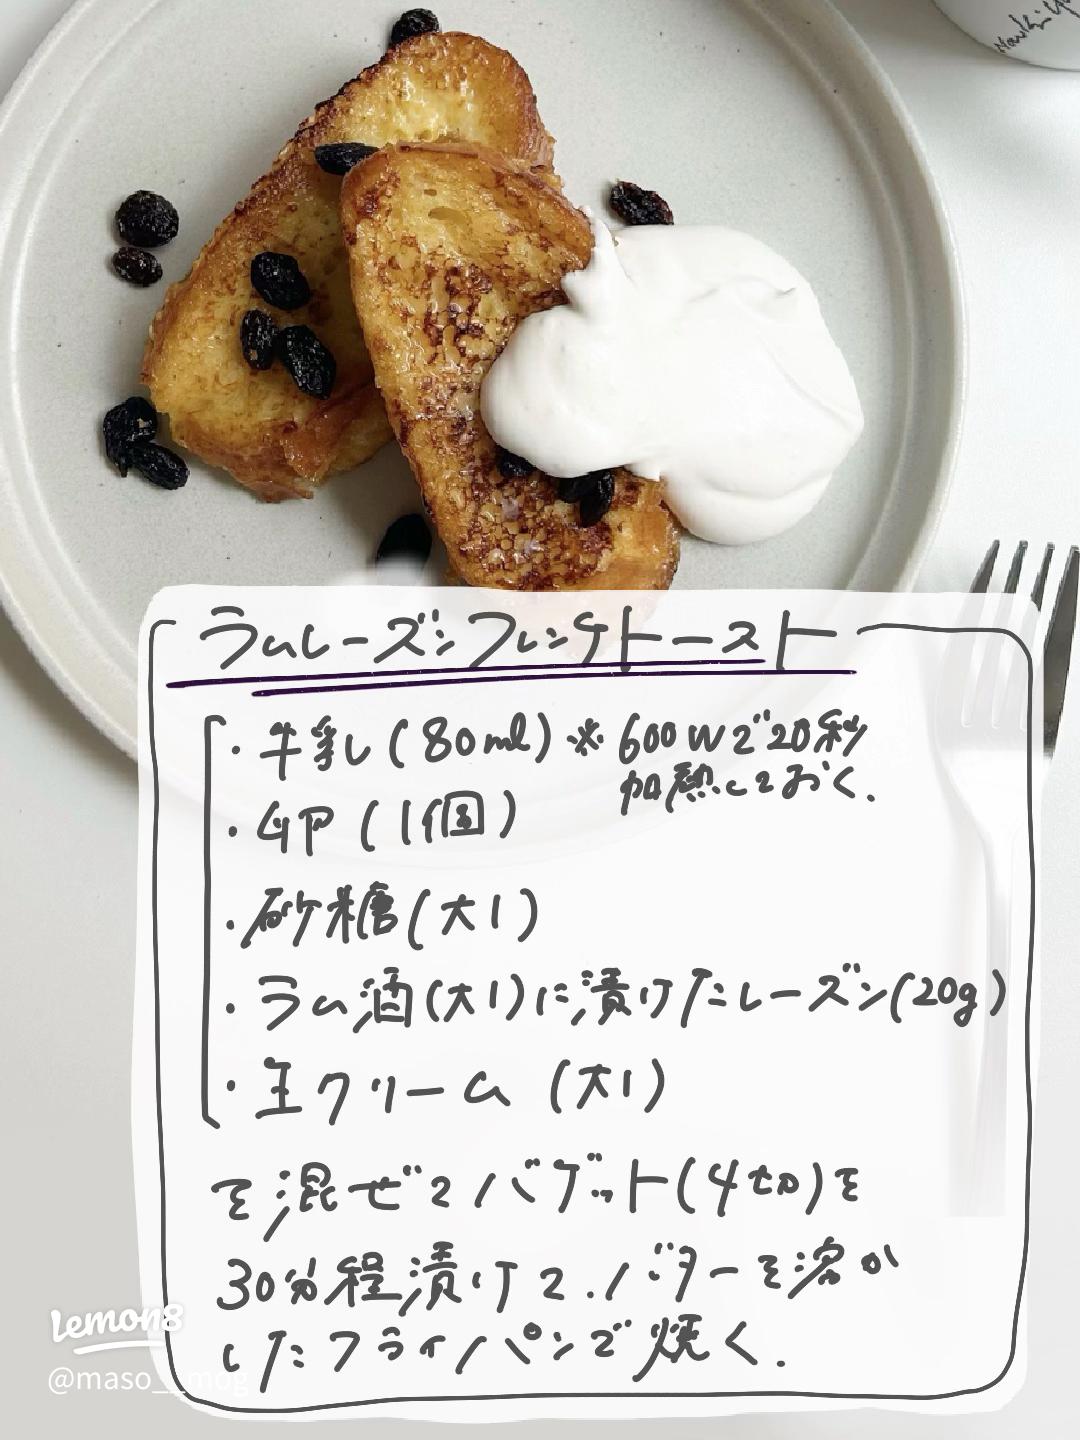 ラムレーズンフレンチトースト
・牛乳(80ml)※600Wで20秒
加熱しておく.
・卵(1個)
・砂糖(大1)
・ラム酒(大1)に漬けたレーズン(20g)
・生クリーム(大1)
を混ぜてバゲット(4切)を
30分程漬けて.バターを溶か
したフライパンで焼く.
Lemon8
@maso__mog